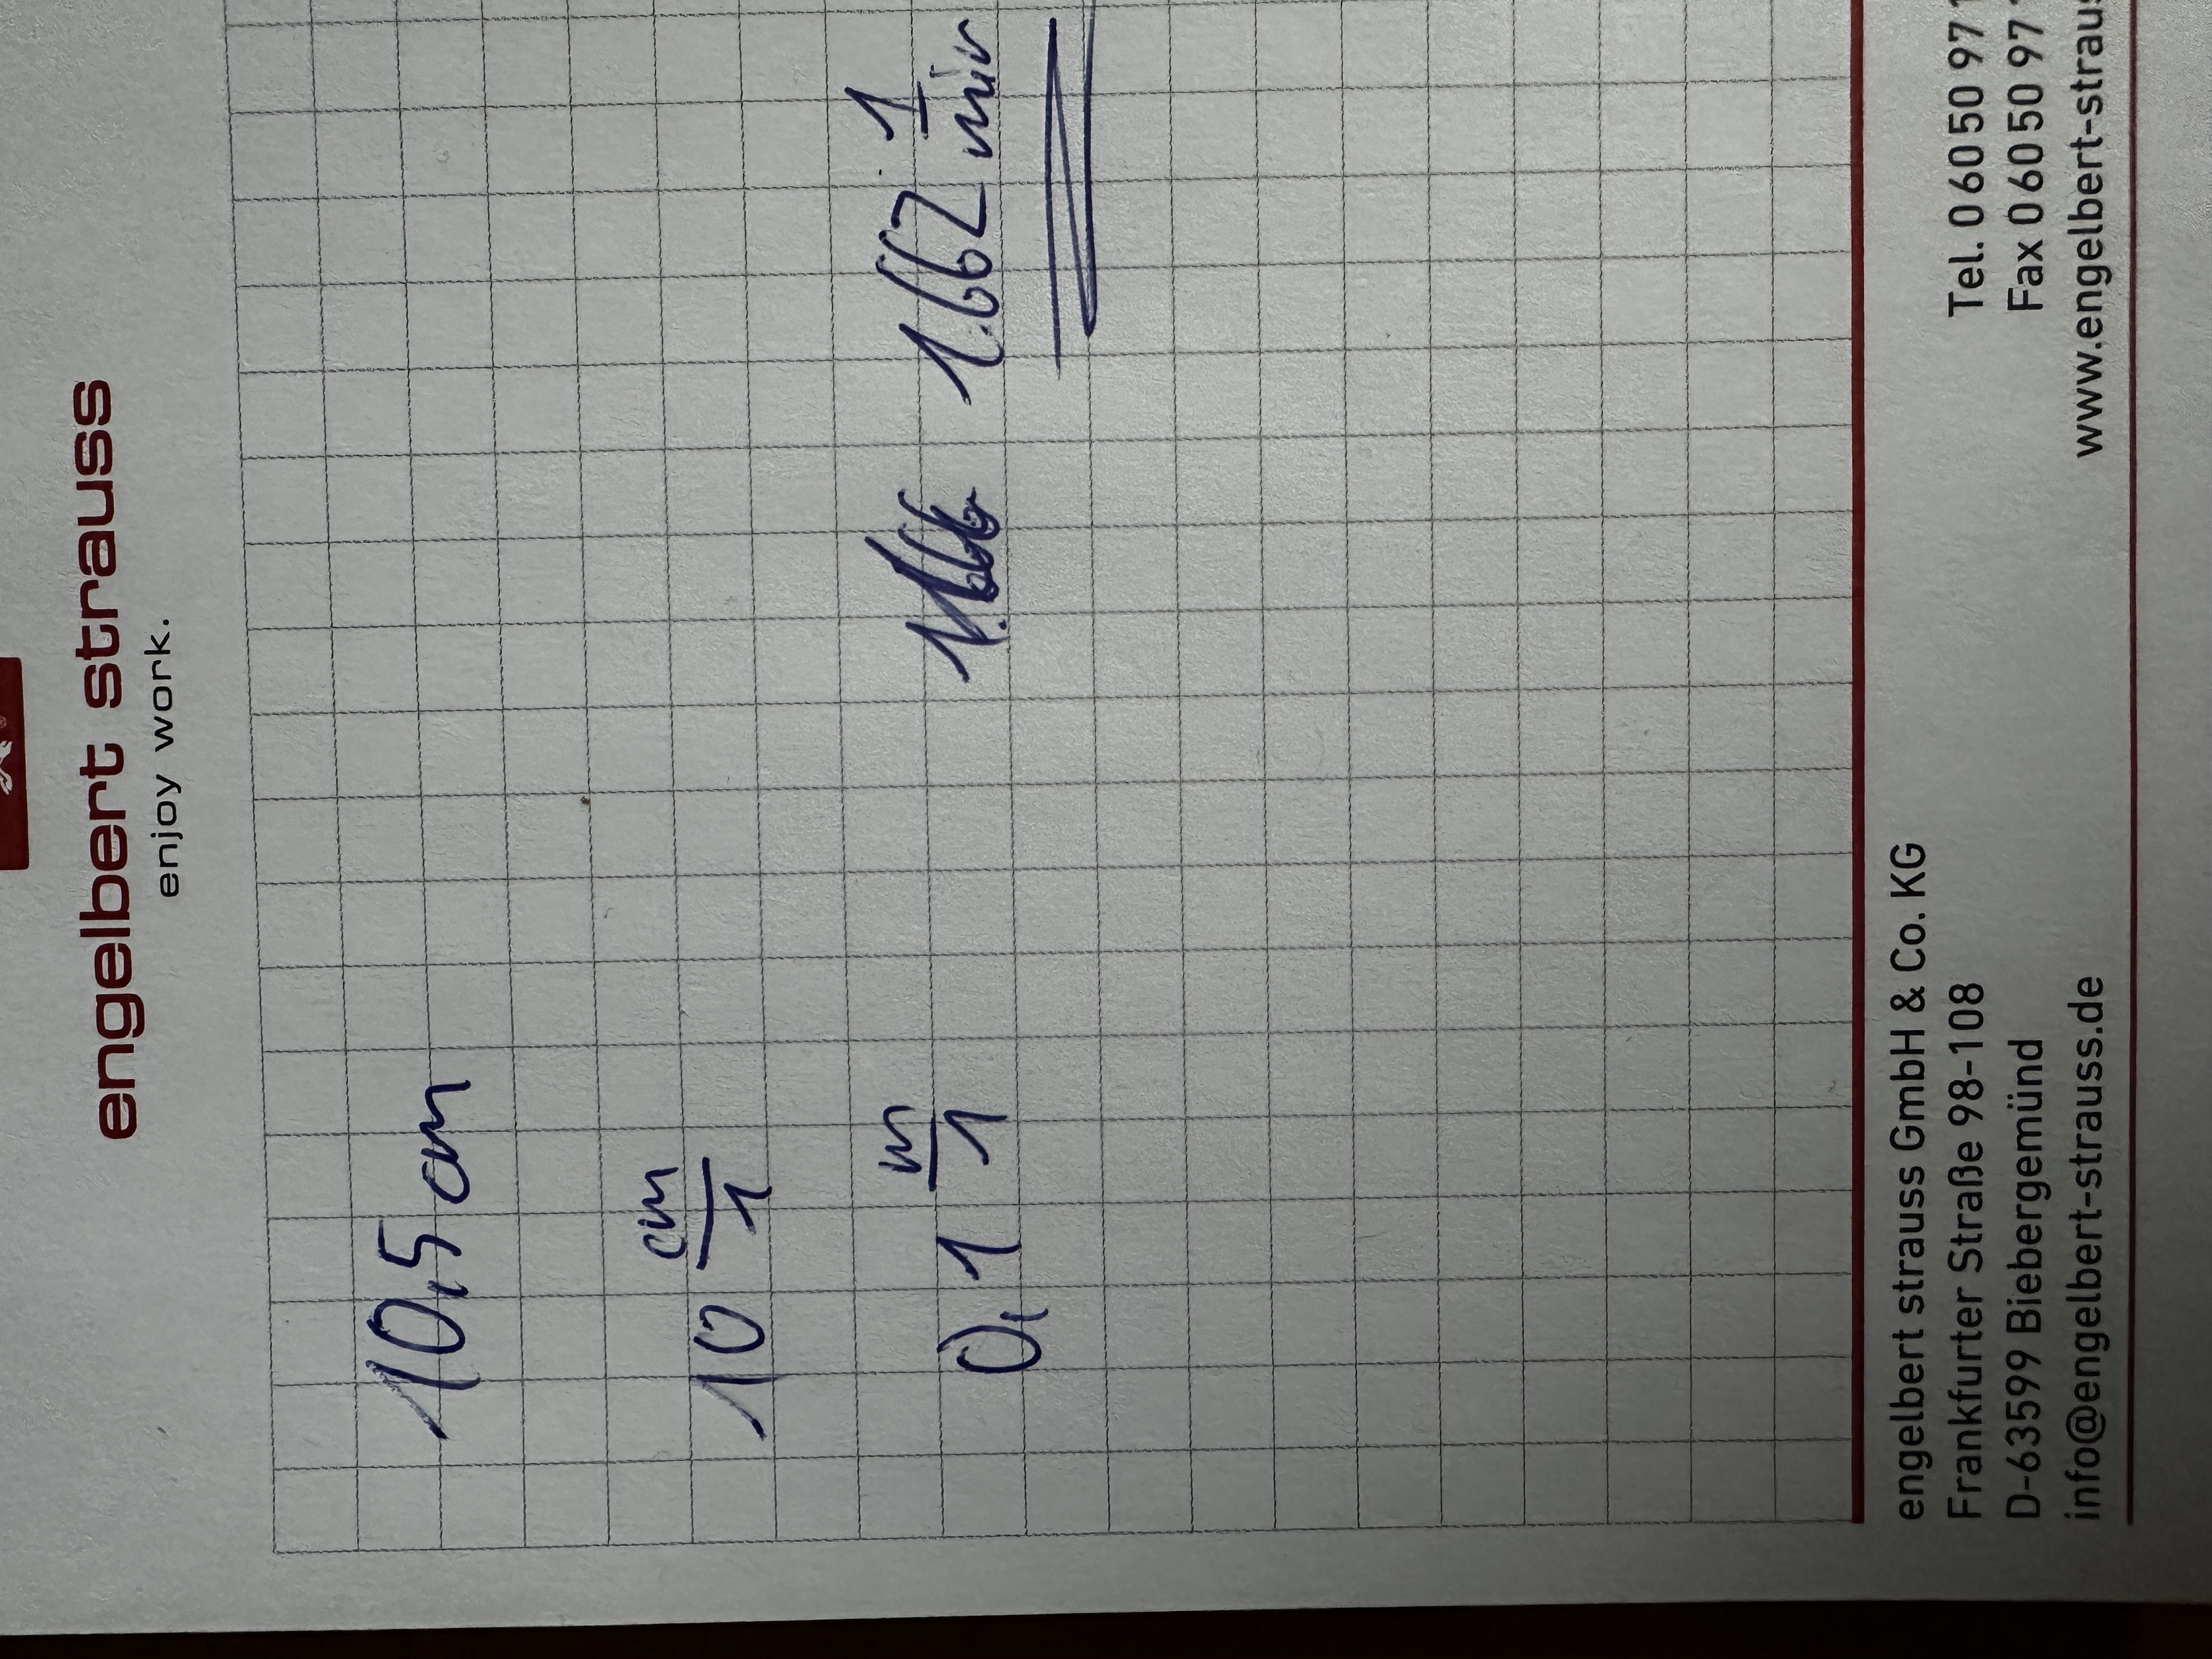 engelbert strauss
enjoy work.
10,5 cm
10 cm/1
0,1 m/1 1.662 1/min
engelbert strauss GmbH & Co. KG
Frankfurter Straße 98-108
D-63599 Biebergemünd Tel. 0 60 50 97
info@engelbert-strauss.de Fax 0 60 50 97
www.engelbert-straus